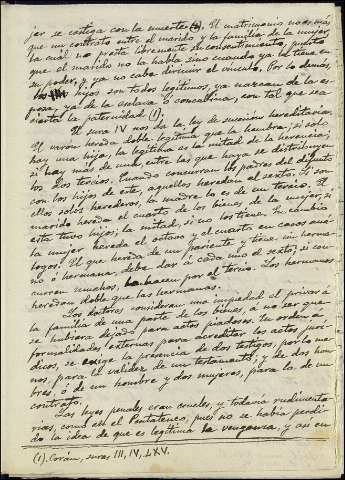 jer se castiga con la muerte (1). El matrimonio no es más
que un contrato entre el marido y la familia de la mujer,
la cual no presta libremente su consentimiento, puesto
que el marido no la habla sino cuando ya la tiene en
su poder, y ya no cabe dirimir el vínculo. Por lo demás,
los hijos son todos legítimos, ya nazcan de la es-
posa, ya de la esclava ó concubina, con tal que sea
cierta la paternidad (1).
El sura IV nos da la ley de sucesión hereditaria.
El varón hereda doble legítima que la hembra; si solo
hay una hija, la legítima es la mitad de la herencia;
si hay más de una, entre las que haya se distribuyen
los dos tercios. Cuando concurran los padres del difunto
con los hijos de este, aquellos heredan el sexto; si son
ellos solos herederos, la madre lo es de un tercio. El
marido hereda el cuarto de los bienes de la mujer, si
esta tuvo hijos; la mitad, si no los tiene. En cambio
la mujer hereda el octavo y el cuarto en casos aná-
logos. El que hereda de un pariente y tiene un herma-
no ó hermana, debe dar á cada uno el sexto; si con-
curren muchos, hacen por el tercio. Los hermanos
heredan doble que las hermanas.
Los doctores consideran una impiedad el privar á
la familia de una parte de los bienes, á no ser que
se hubiera dejado para actos piadosos. En orden á
formalidades externas para acreditar los actos jurí-
dicos, se exige la presencia de dos testigos, por lo me-
nos, para la validez de un testamento; y de dos hom-
bres, ó de un hombre y dos mujeres, para la de un
contrato.
Las leyes penales eran crueles y todavía rudimenta-
rias, como en el Pentateuco, pues no se había perdi-
do la idea de que es legítima la venganza, y así en
(1). Corán, suras III, IV, LXV.